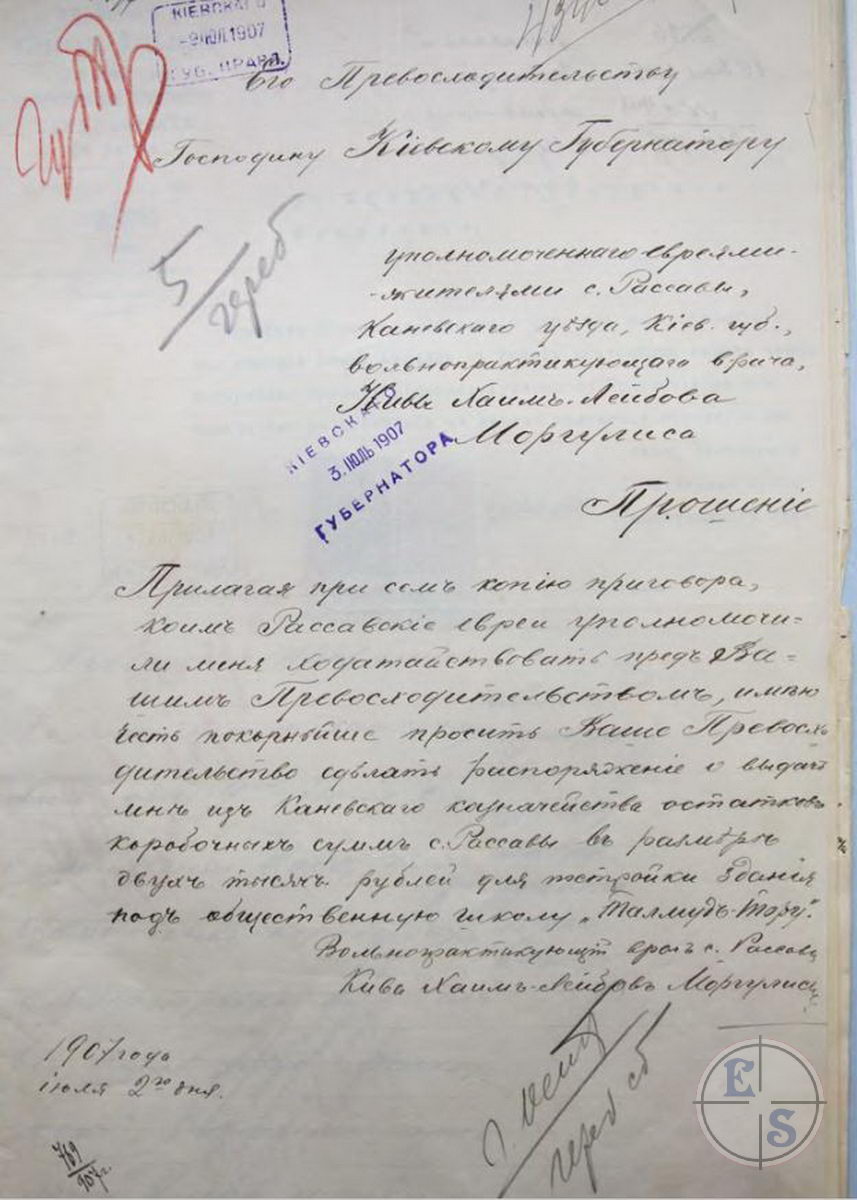 КІЕВСКАГО
-9 ІЮЛ. 1907
ГУБ. ПРАВЛ.
Его Превосходительству
Господину Кіевскому Губернатору
5
герб
уполномоченнаго евреями-
-жителями с. Рассавы,
Каневскаго уѣзда, Кіев. губ.,
вольнопрактикующаго врача,
Кивы Хаимъ-Лейбова
Моргулиса
КІЕВСКАГО
3. ІЮЛЬ 1907
ГУБЕРНАТОРА
Прошеніе
Прилагая при семъ копію приговора,
коимъ Рассавскіе евреи уполномочи-
ли меня ходатайствовать предъ Ва-
шимъ Превосходительствомъ, имѣю
честь покорнѣйше просить Ваше Превосхо
дительство сдѣлать распоряженіе о выдачѣ
мнѣ изъ Каневскаго казначейства остатковъ
коробочныхъ суммъ с. Рассавы въ размѣрѣ
двухъ тысячъ рублей для постройки зданія
подъ общественную школу „Талмудъ-Тору".
Вольнопрактикующій врачъ с. Рассавы
Кива Хаимъ-Лейбовъ Моргулисъ
1907 года
іюля 2го дня.
герб сб
769
907 г.
E
S